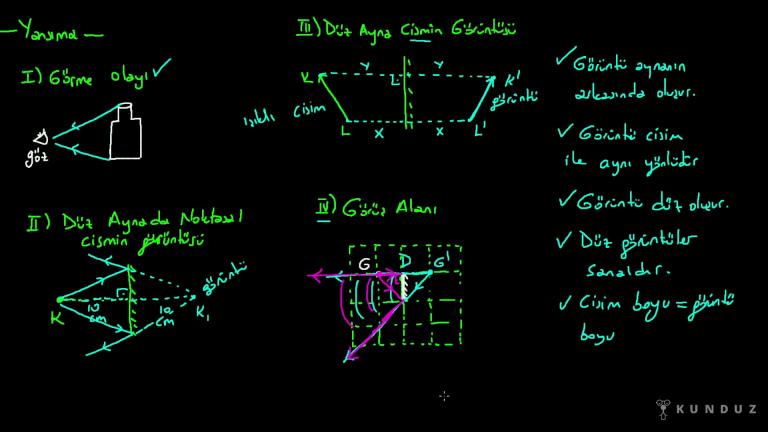 — Yansıma —
I) Görme olayı ✓
göz
II) Düz Aynada Noktasal
cismin görüntüsü
K
10
cm
10
cm
K₁
görüntü
III) Düz Ayna Cismin Görüntüsü
K
y
y
K'
görüntü
ışıklı cisim
L
x
x
L'
IV) Görüş Alanı
G
D
G'
✓ Görüntü aynanın
arkasında oluşur.
✓ Görüntü cisim
ile aynı yönlüdür
✓ Görüntü düz oluşur.
✓ Düz görüntüler
sanaldır.
✓ Cisim boyu = görüntü
boyu
KUNDUZ